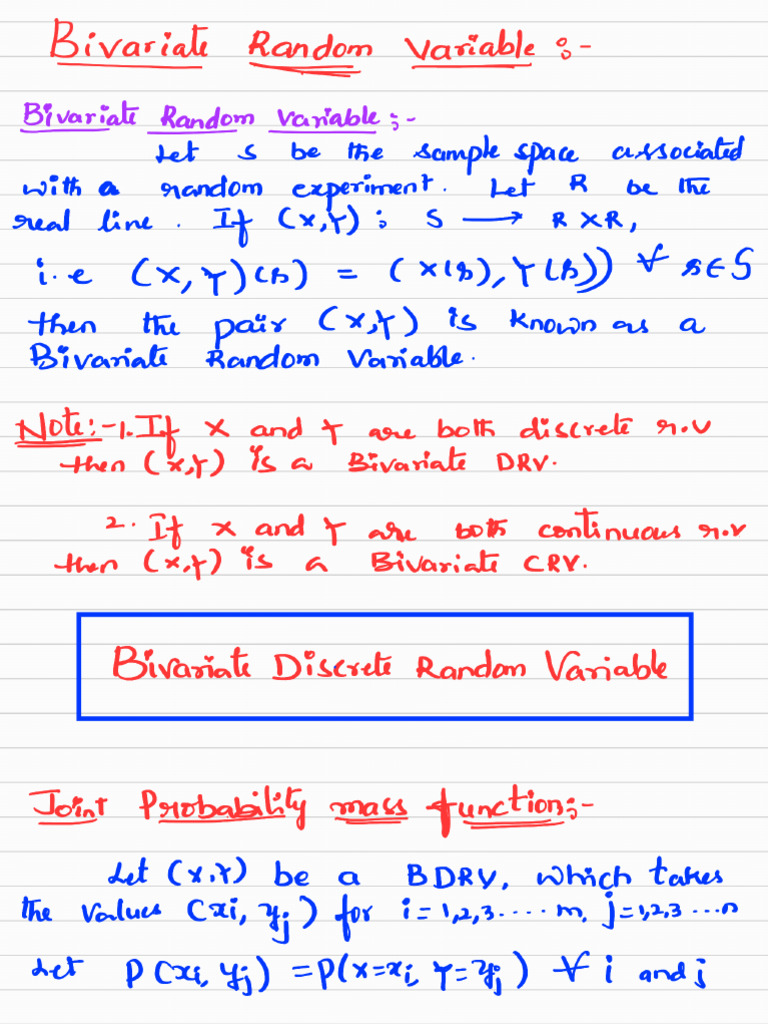 Bivariate Random Variable :-
Bivariate Random Variable :-
Let S be the sample space associated
with a random experiment. Let R be the
real line. If (X,Y) : S ⟶ R X R,
i.e (X, Y)(s) = (X(s), Y(s)) ∀ s∈S
then the pair (X,Y) is known as a
Bivariate Random Variable.
Note:- 1. If X and Y are both discrete r.v
then (X,Y) is a Bivariate DRV.
2. If X and Y are both continuous r.v
then (X,Y) is a Bivariate CRV.
Bivariate Discrete Random Variable
Joint Probability mass function:-
Let (X,Y) be a BDRV, which takes
the values (xi, yj) for i=1,2,3....m, j=1,2,3...n
Let P(xi, yj) = P(X=xi, Y=yj) ∀ i and j